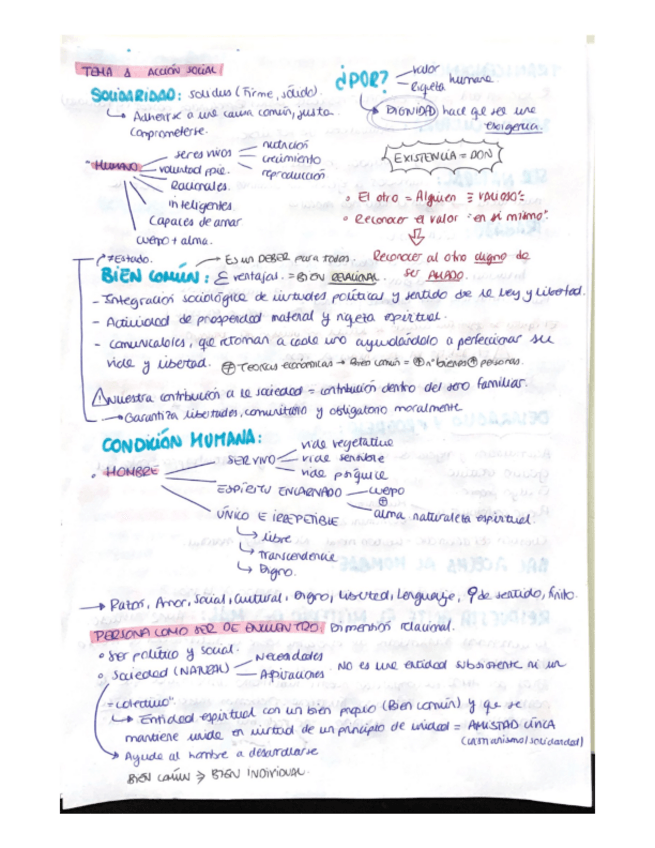 TEMA 1 ACCIÓN SOCIAL
SOLIDARIDAD: solidus (Firme, sólido).
↳ Adherirse a una causa común, justa.
comprometerse.
¿POR? valor
riqueza humana
DIGNIDAD hace que sea una
exigencia.
EXISTENCIA = DON
• HUMANO
seres vivos
nutrición
crecimiento
reproducción
voluntad ppia.
Racionales
inteligentes
Capaces de amar
cuerpo + alma.
• El otro = Alguien = valioso
• Reconocer el valor "en sí mismo".
Reconocer al otro digno de
ser AMADO.
≠ Estado.
→ Es un DEBER para todos.
BIEN COMÚN: Σ ventajas. = BIEN RELACIONAL.
- Integración sociológica de virtudes políticas y sentido de la ley y libertad.
- Actividad de prosperidad material y riqueza espiritual.
- comunicables, que retornan a cada uno ayudándolo a perfeccionar su
vida y libertad. ⊕ Teorías económicas → Bien común = ⊕ nº bienes ⊕ personas.
⚠ Nuestra contribución a la sociedad = contribución dentro del seno familiar.
→ Garantiza libertades, comunitario y obligatorio moralmente
CONDICIÓN HUMANA:
• HOMBRE
SER VIVO
vida vegetativa
vida sensible
vida psíquica
ESPÍRITU ENCARNADO
cuerpo
⊕
alma naturaleza espiritual.
ÚNICO E IRREPETIBLE
↳ libre
↳ Transcendencia
↳ Digno.
→ Patos, Amor, Social, Cultural, Digno, Libertad, Lenguaje, de sentido, finito.
PERSONA COMO SER DE ENCUENTRO. Dimensión relacional.
• Ser político y social.
• Sociedad (NATURAL)
Necesidades
Aspiraciones
No es una entidad subsistente ni un
"colectivo".
↳ Entidad espiritual con un bien propio (Bien común) y que se
mantiene unida en virtud de un principio de unidad = AMISTAD CÍVICA
(cristianismo/solidaridad)
→ Ayuda al hombre a desarrollarse
BIEN COMÚN ⇒ BIEN INDIVIDUAL.